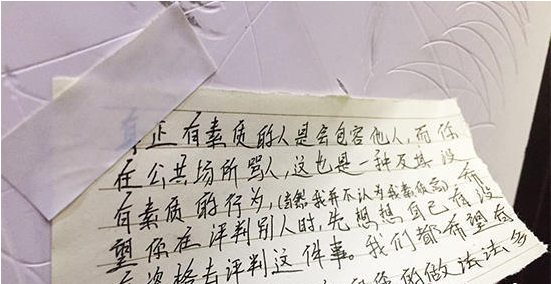 真正有素质的人是会包容他人,而你
在公共场所骂人,这也是一种及其没
有素质的行为,(当然我并不认为我素质高)希
望你在评判别人时,先想想自己有没
有资格去评判这件事。我们都希望有
你的做法法